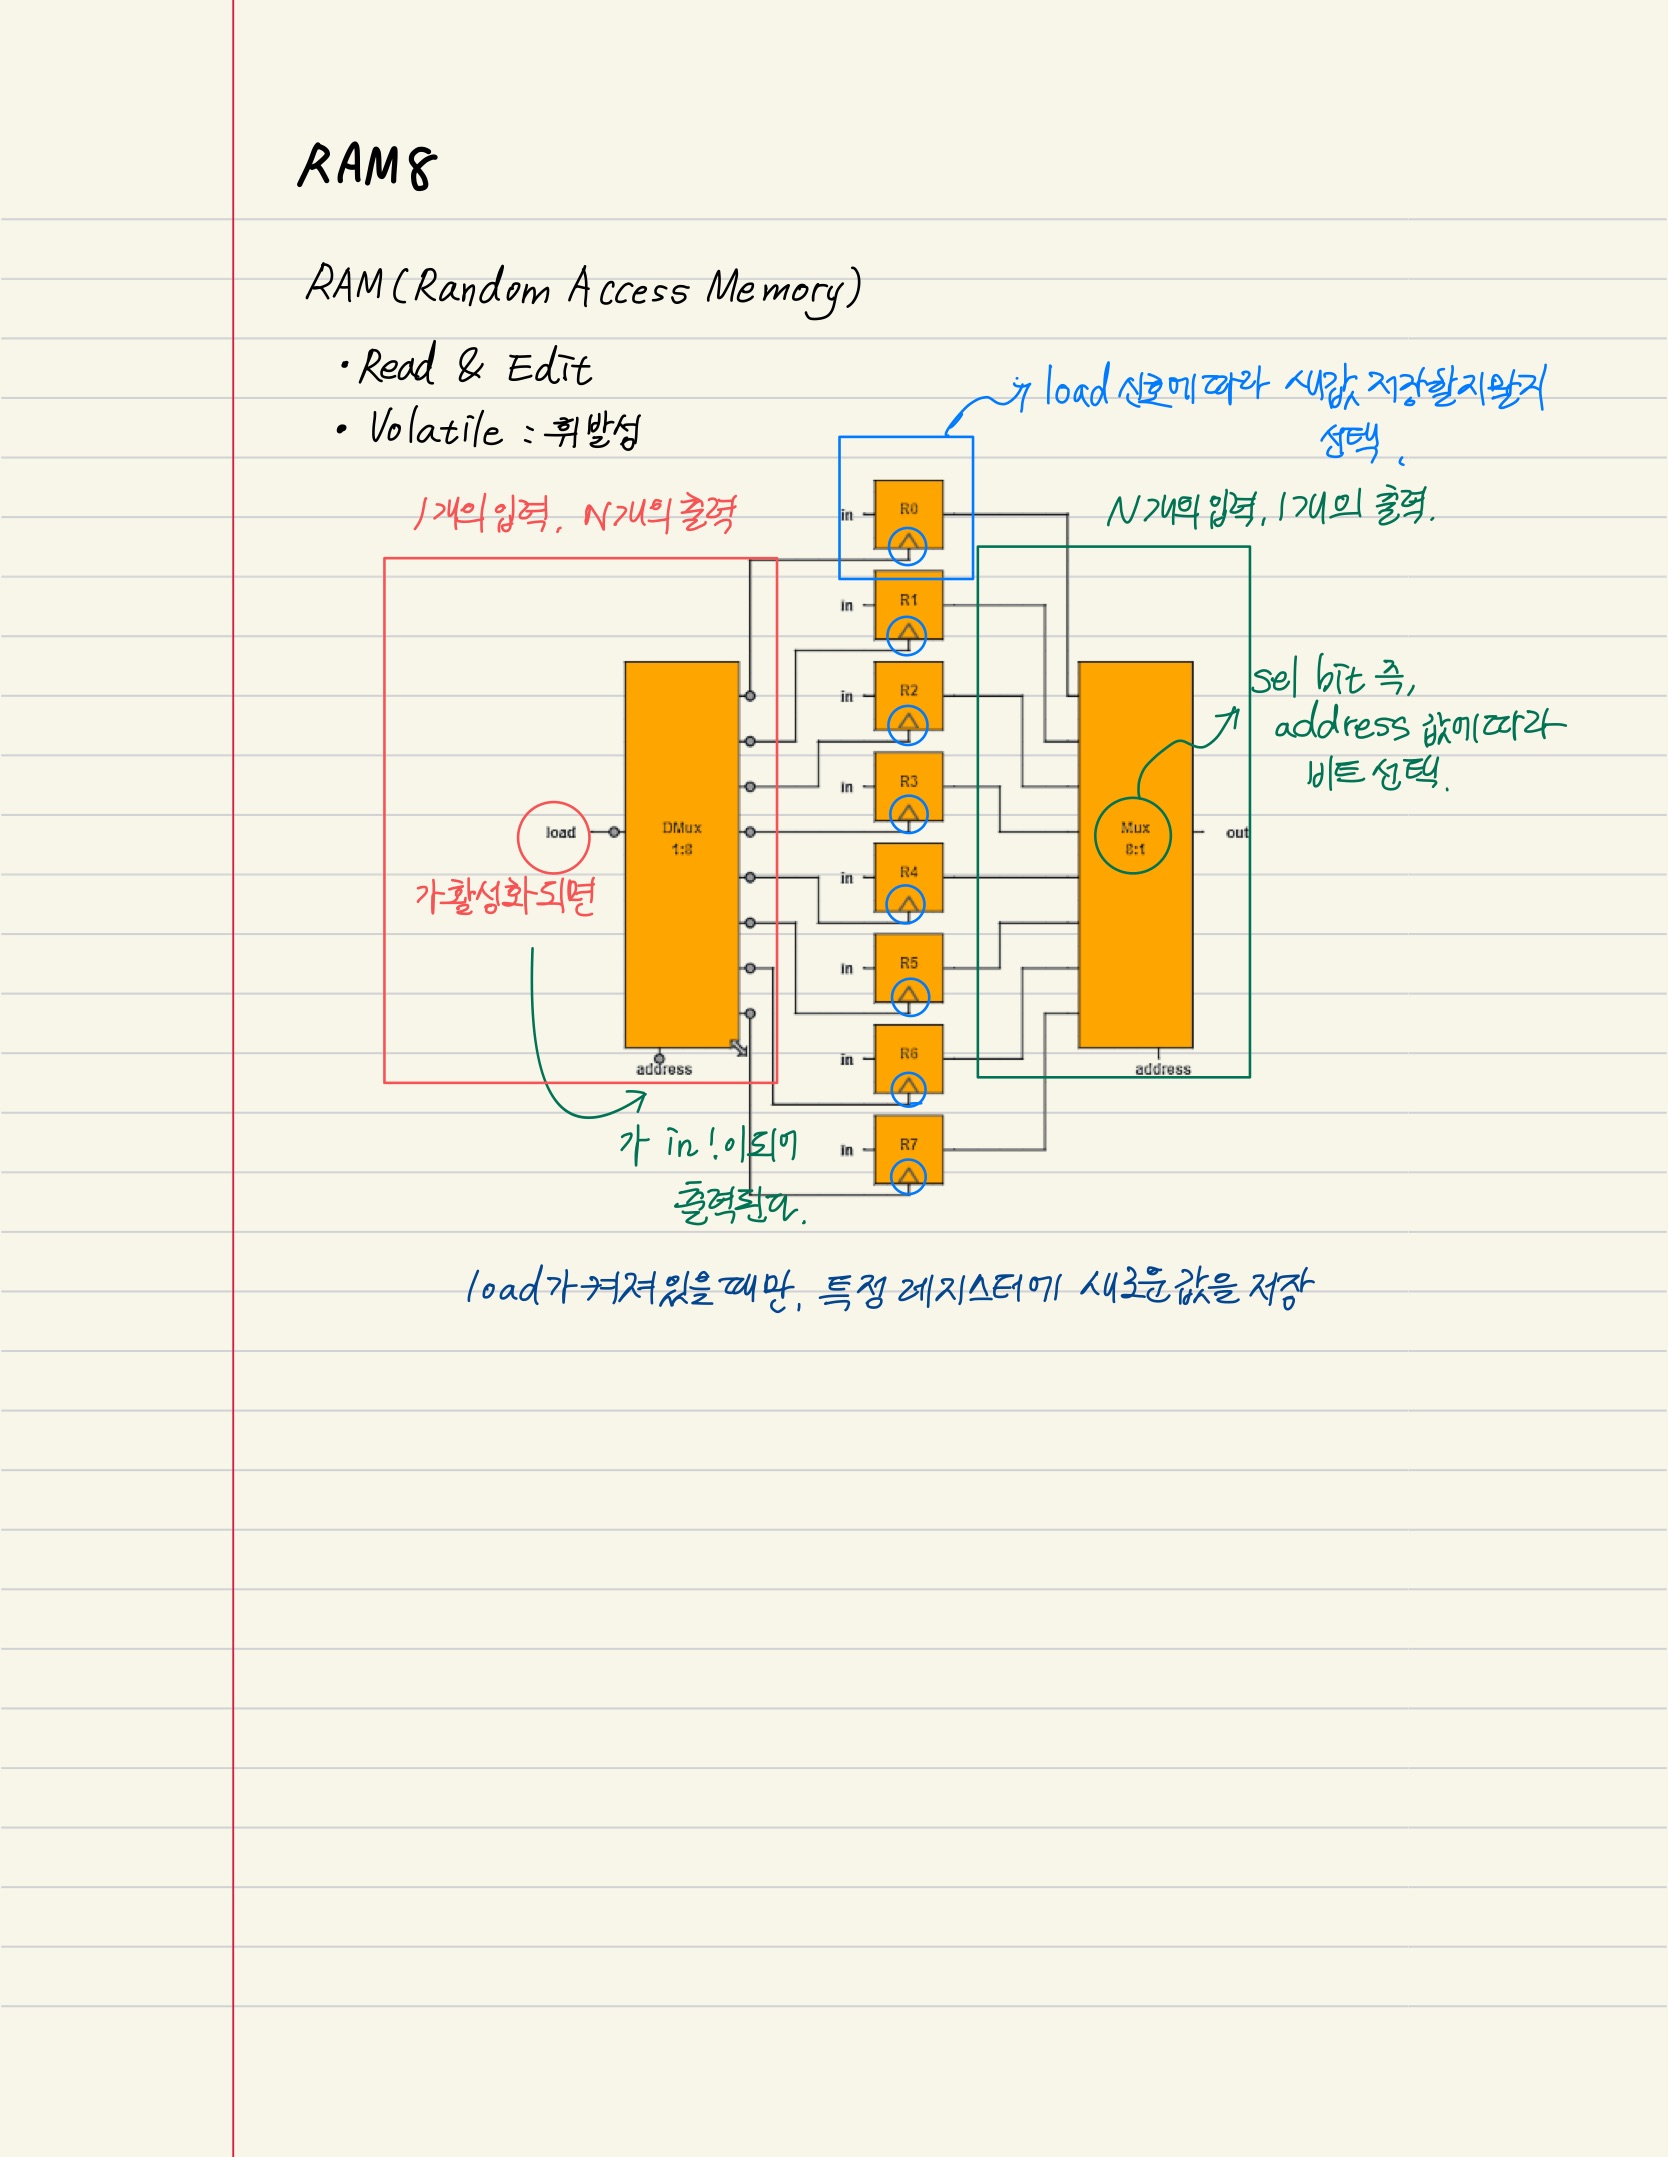 RAM8
RAM(Random Access Memory)
• Read & Edit
• Volatile : 휘발성
load 신호에따라 새값 저장할지말지
선택.
1개의 입력, N개의 출력
N개의 입력, 1개의 출력.
in R0
in R1
in R2
in R3
in R4
in R5
in R6
in R7
load
가 활성화되면
DMux
1:8
address
Mux
8:1
out
address
sel bit 즉,
address 값에따라
비트 선택.
가 in!이되어
출력된다.
load가 켜져있을때만, 특정 레지스터에 새로운값을 저장